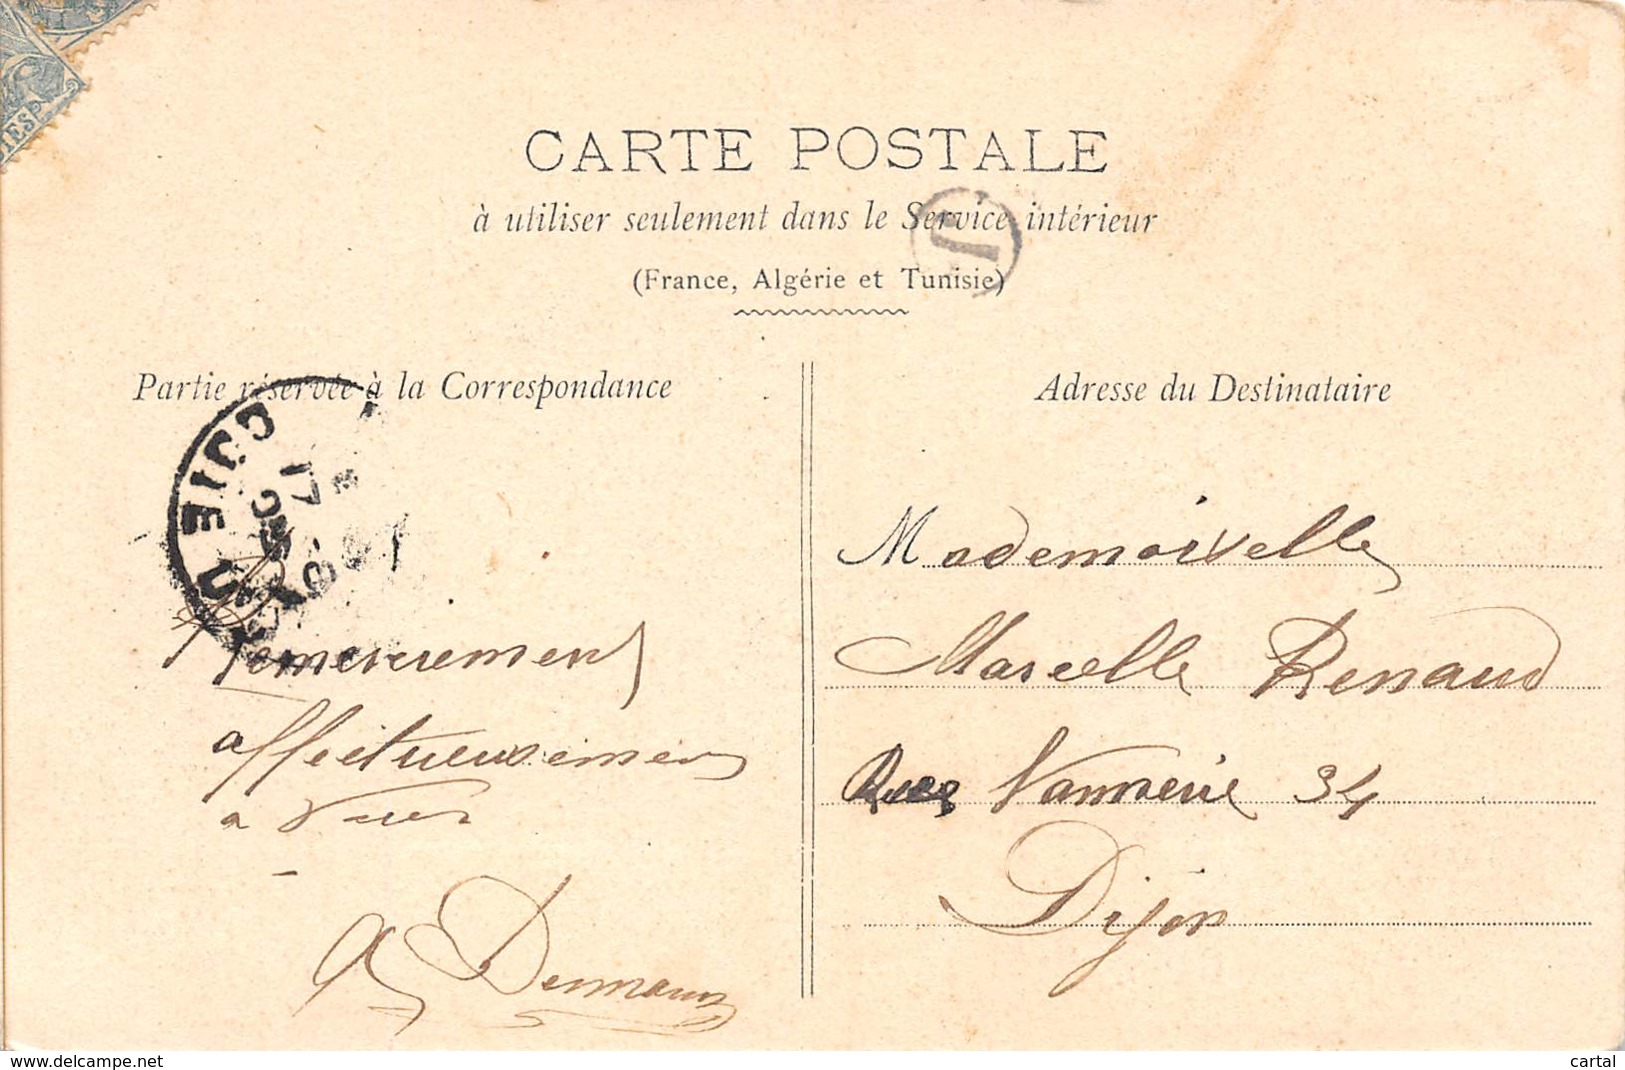 CARTE POSTALE
à utiliser seulement dans le Service intérieur
(France, Algérie et Tunisie)
Partie réservée à la Correspondance
Remerciement
affectueusement
a Vous
A Denmann
Adresse du Destinataire
Mademoiselle
Marcelle Renaud
Rue Vannerie 34
Dijon
17
www.delcampe.net
cartal